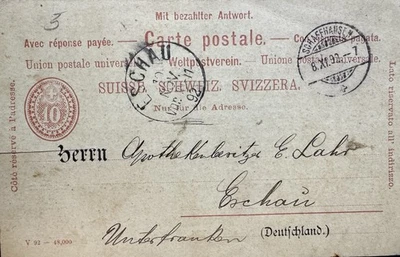 3
Mit bezahlter Antwort.
Avec réponse payée. Carte postale. Con risposta pagata.
Union postale universelle. Weltpostverein. Unione postale universale.
SUISSE. SCHWEIZ. SVIZZERA.
Nur für die Adresse.
ESCHAU
NOV.
92
SCHAFFHAUSEN
8.XI.92.-7
Côté réservé à l'adresse.
10
Lato riservato all' indirizzo.
Herrn Apothekenbesitzer E. Lahr
Eschau
Unterfranken (Deutschland.)
V 92 - 48,000